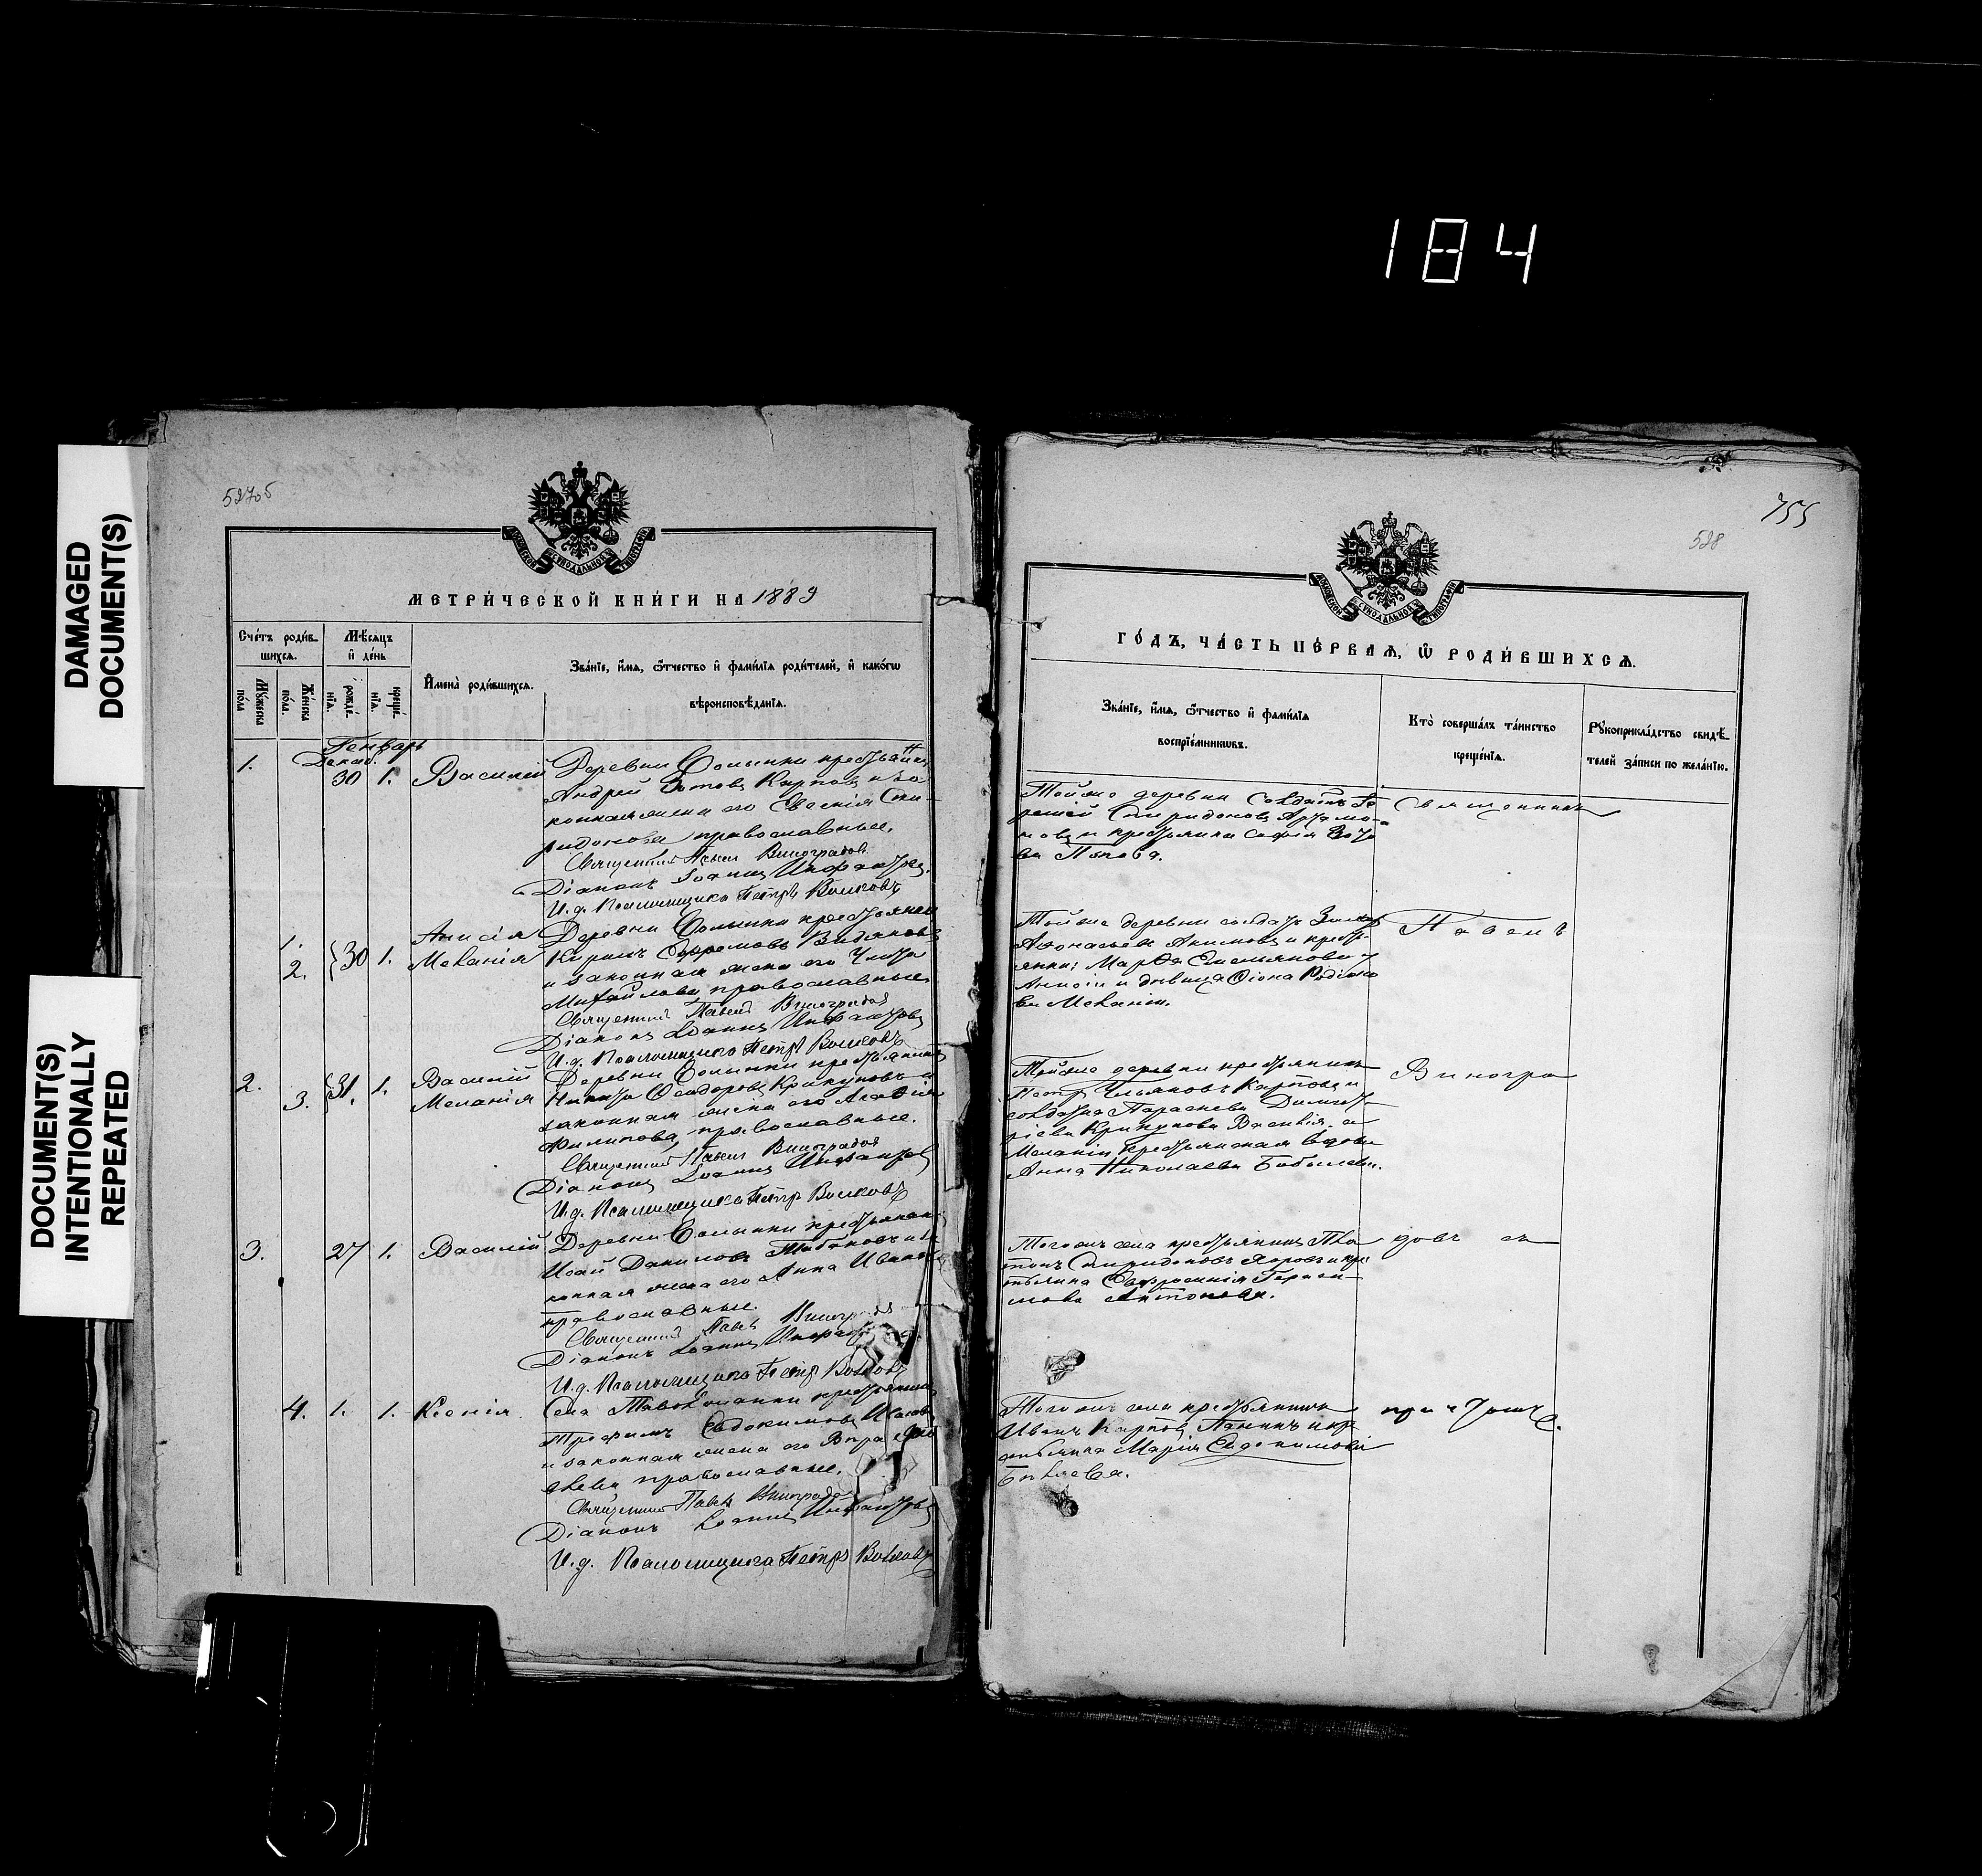 184
DAMAGED
DOCUMENT(S)
DOCUMENT(S)
INTENTIONALLY
REPEATED
527об
МЕТРИ́ЧЕСКОЙ КНИ́ГИ НА 1889
Сче́тъ роди́в-
шихсѧ.
Мѣ́сѧцъ
и҆ де́нь
Мꙋ́жеска
по́ла
Же́нска
по́ла.
рожде́-
нїѧ.
креще́-
нїѧ.
И҆мена̀ роди́вшихсѧ.
Зва́нїе, и҆́мѧ, ѻ҆́тчество и҆ фами́лїѧ роди́телей, и҆ како́гѡ
вѣроисповѣ́данїѧ.
Генварь
Декаб.
1. 30 1. Василій
Деревни Солынки крестьянинъ
Андрей Титовъ Карповъ и за-
конная жена его Евгенія Спи-
ридонова православные.
Священникъ Павелъ Виноградовъ
Діаконъ Іоаннъ Инфантьевъ
И. д. Псаломщика Петръ Волковъ
1. 2. 30 1. Анисія
Меланія
Деревни Солынки крестьянинъ
Ефремовъ
и законная жена его
Михайлова православные
Священникъ Павелъ Виноградовъ
Діаконъ Іоаннъ Инфантьевъ
И. д. Псаломщика Петръ Волковъ
2. 3. 31. 1. Василій
Меланія
Деревни Солынки крестьянинъ
Никита Ѳеодоровъ Крикуновъ и
законная жена его Агафія
Филипова, православные.
Священникъ Павелъ Виноградовъ
Діаконъ Іоаннъ Инфантьевъ
И. д. Псаломщика Петръ Волковъ
3. 27 1. Василій
Деревни Солынки крестьянинъ
Исай Даниловъ Табаковъ и за-
конная жена его Анна Иванова
православные.
Священникъ Павелъ
Діаконъ Іоаннъ
И. д. Псаломщика Петръ Волковъ
4. 1. 1. Ксенія
Села крестьянинъ
Трофимъ Евдокимовъ
и законная жена его
православные.
Священникъ Павелъ Виноградовъ
Діаконъ Іоаннъ Инфантьевъ
И. д. Псаломщика Петръ Волковъ
755
528
ГО́ДЪ, ЧА́СТЬ ПЕ́РВАѦ, Ѡ҆ РОДИ́ВШИХСѦ.
Зва́нїе, и҆́мѧ, ѻ҆́тчество и҆ фами́лїѧ
воспрїе́мникѡвъ.
Кто̀ соверша́лъ та́инство
креще́нїѧ.
Рꙋкоприкла́дство свидѣ́-
телей за́писи по жела́нїю.
Тойже деревни солдатъ
Спиридоновъ Артамо-
новъ и крестьянка Софія
Попова.
Священникъ
Тойже деревни солдатъ
Аѳонасьевъ Акимовъ и кресть-
янка: Марѳа Емельянова
Анисіи и дѣвица
Меланіи.
Павелъ
Тойже деревни крестьянинъ
Петръ Ульяновъ Карповъ и
солдатка Параскева Димит-
ріева Крикунова Василія, а
Меланіи крестьянская вдова
Анна Николаева
Виногра
Тогожъ села крестьянинъ Пла-
тонъ Спиридоновъ и кре-
стьянка Евфросинія
Антонова.
довъ съ
Тогожъ села крестьянинъ
Иванъ Карповъ и кре-
стьянка Марія Евдокимова
Бѣляева.
причтомъ.